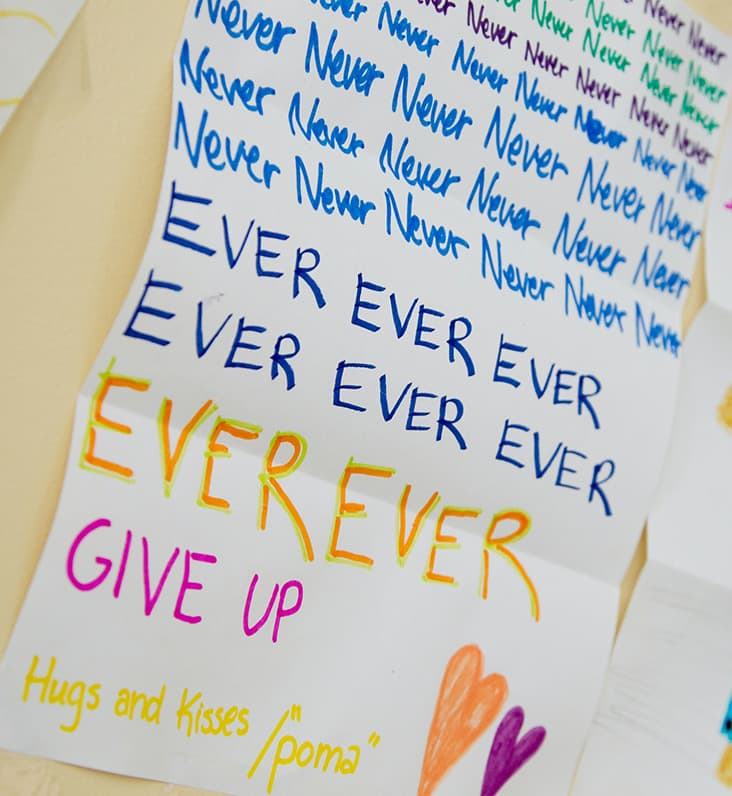 Never Never
Never Never Never
Never Never Never Never
Never Never Never Never Never
Never Never Never Never Never Never
Never Never Never Never Never Never
Never Never Never Never Never Never
Never Never Never Never Never Never
EVER EVER EVER
EVER EVER EVER
EVER EVER
GIVE UP
Hugs and Kisses /"poma"